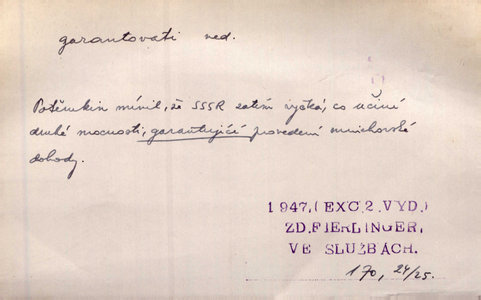 garantovati ned.
Potěmkin mínil, že SSSR zatím vyčká, co učiní
druhé mocnosti, garantující provedení mnichovské
dohody.
1947, (EXC. 2. VYD.)
ZD. FIERLINGER,
VE SLUŽBÁCH.
170, 24/25.